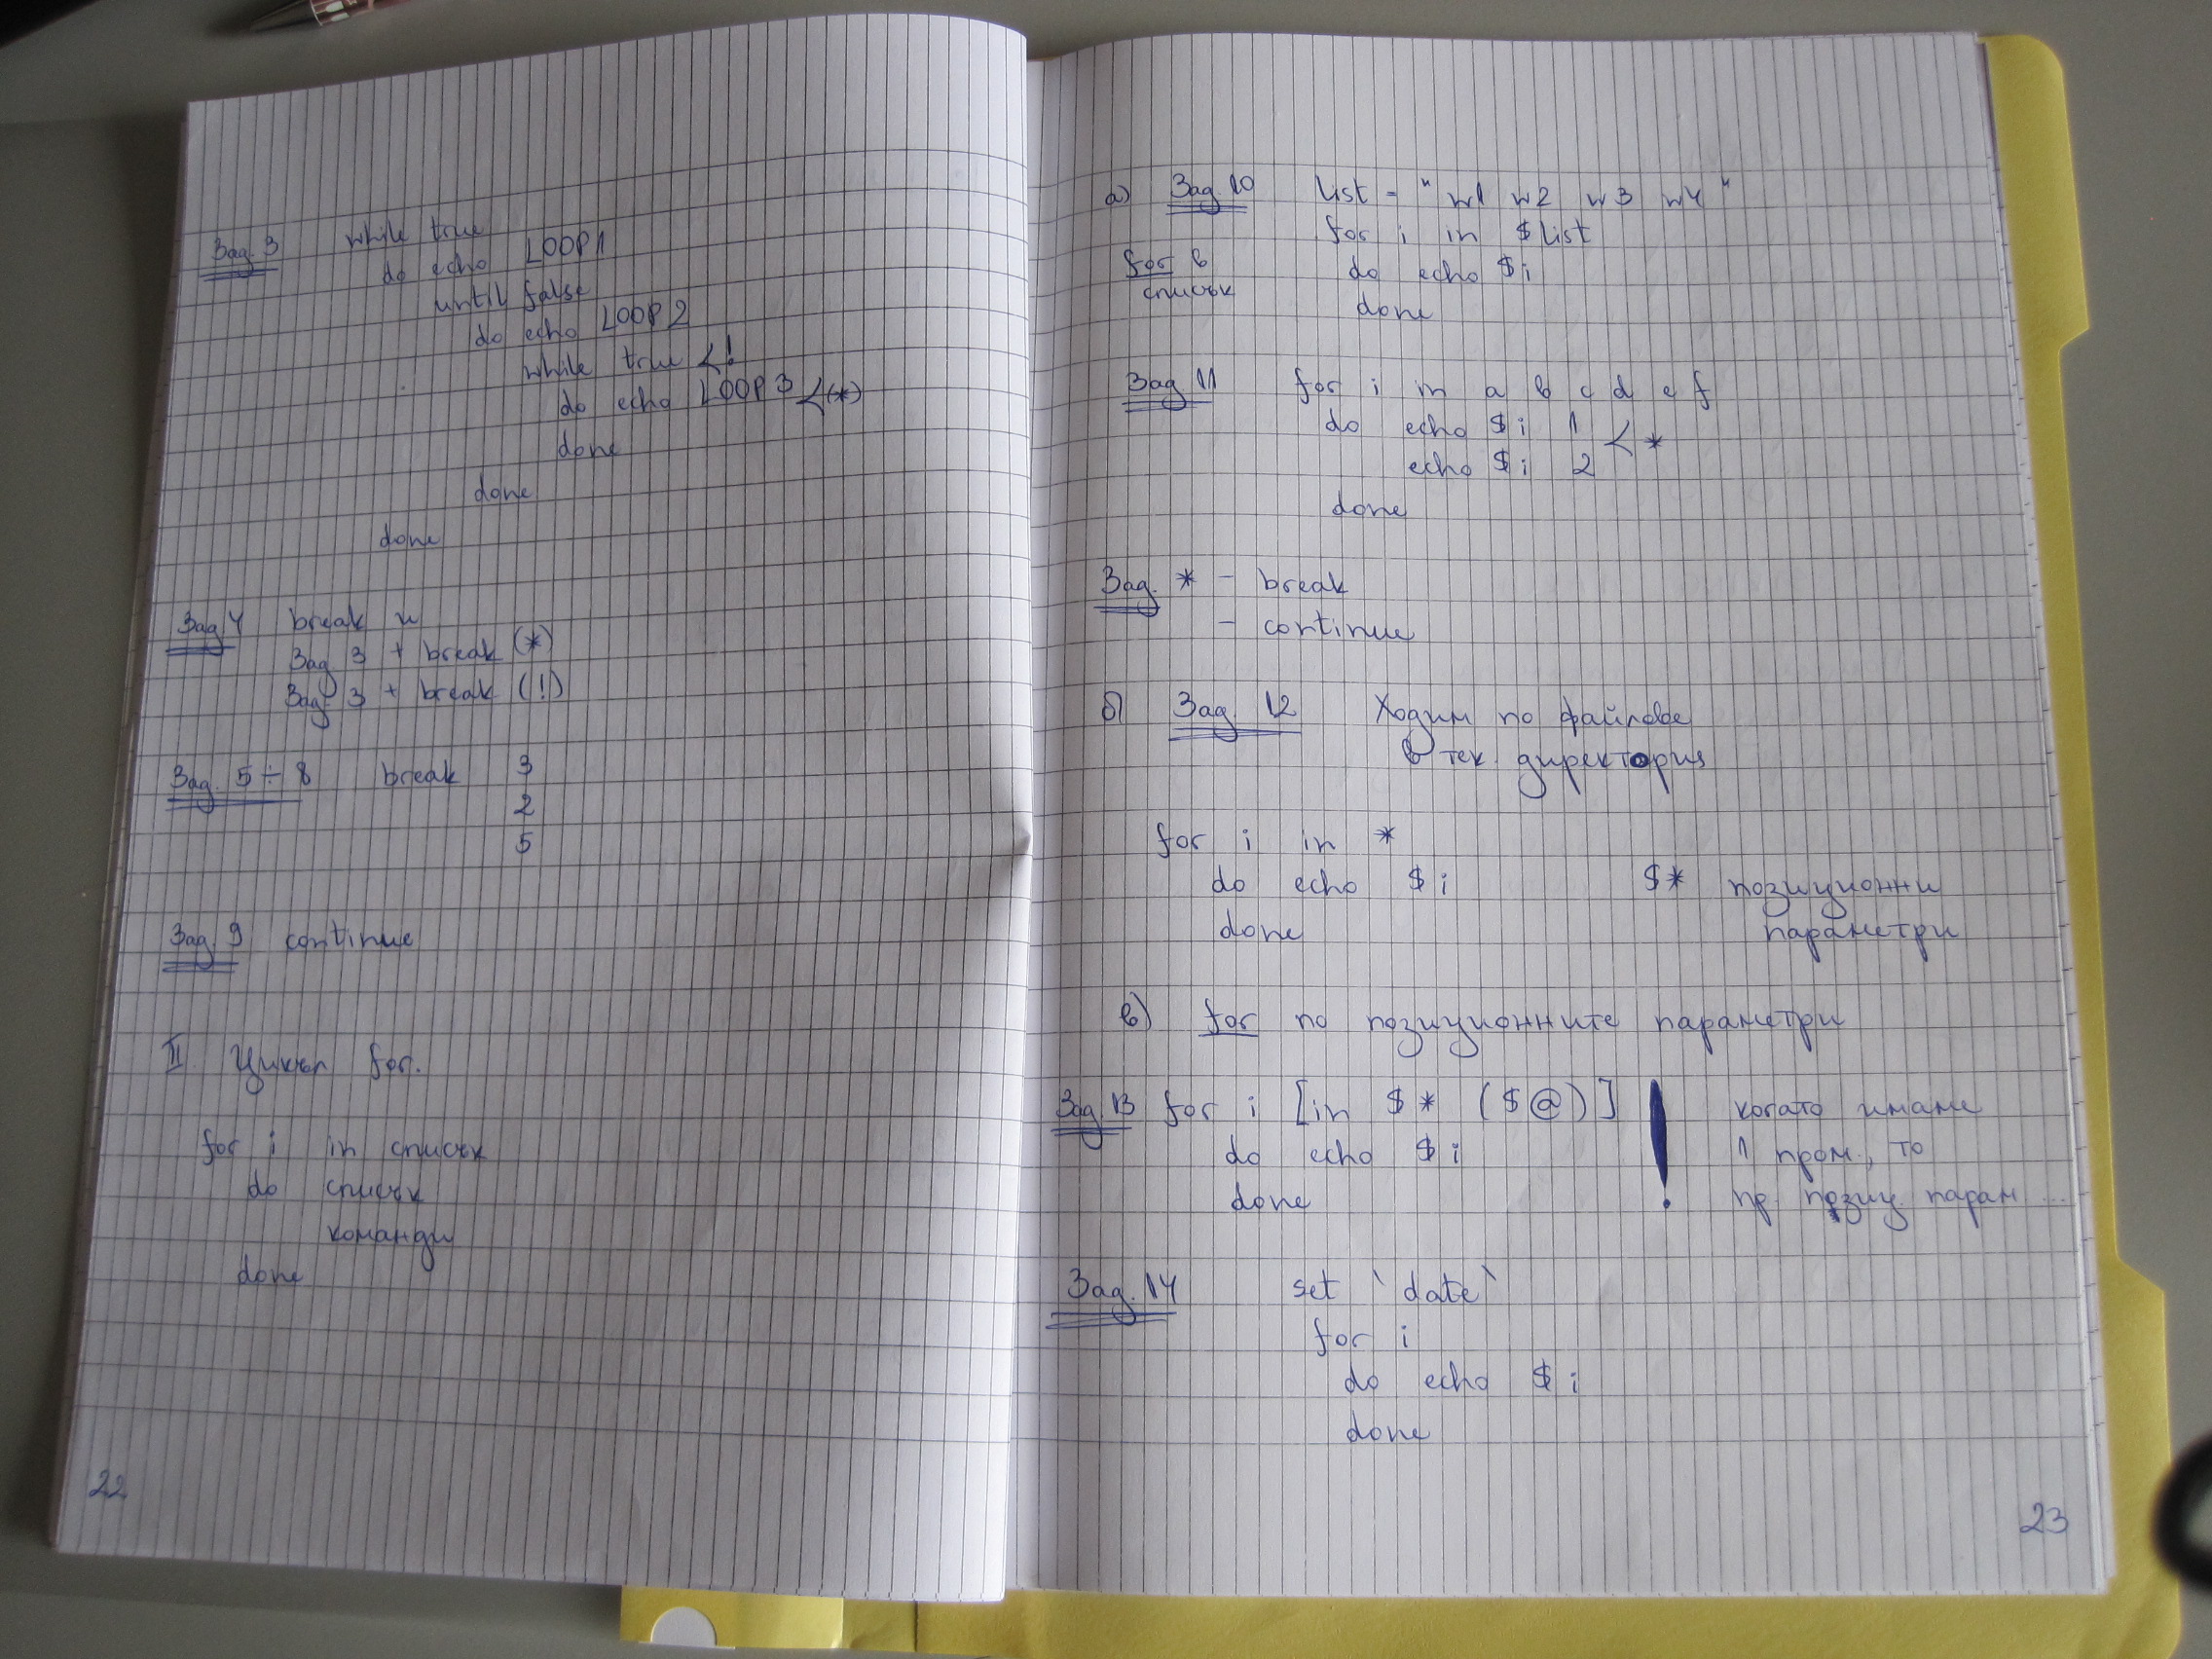 Зад. 3 while true
do echo LOOP1
until false
do echo LOOP2
while true <!
do echo LOOP3 <(*)
done
done
done
Зад 4 break n
Зад 3 + break (*)
Зад. 3 + break (!)
Зад. 5÷8 break 3
2
5
Зад. 9 continue
II. Цикъл for.
for i in списък
do списък
команди
done
22
а) Зад. 10 list = "w1 w2 w3 w4"
for i in $list
for в do echo $i
списък done
Зад 11 for i in a b c d e f
do echo $i 1 < *
echo $i 2
done
Зад. * - break
- continue
б) Зад. 12 Ходим по файлове
в тек. директория
for i in *
do echo $i $* позиционни
done параметри
в) for по позиционните параметри
Зад. 13 for i [in $* ($@)] ! когато имаме
do echo $i 1 пром., то
done пр позиц парам ...
Зад. 14 set `date`
for i
do echo $i
done
23